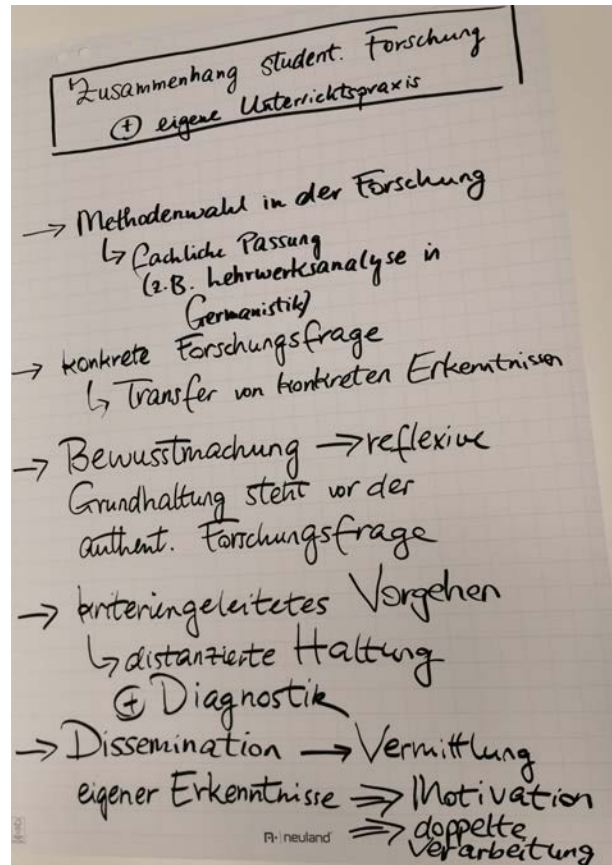 Zusammenhang student. Forschung
⊕ eigene Unterrichtspraxis
→ Methodenwahl in der Forschung
↳ fachliche Passung
(z.B. Lehrwerksanalyse in
Germanistik)
→ konkrete Forschungsfrage
↳ Transfer von konkreten Erkenntnissen
→ Bewusstmachung → reflexive
Grundhaltung steht vor der
authent. Forschungsfrage
→ kriteriengeleitetes Vorgehen
↳ distanzierte Haltung
⊕ Diagnostik
→ Dissemination → Vermittlung
eigener Erkenntnisse ⇒ Motivation
⇒ doppelte
Verarbeitung
neuland